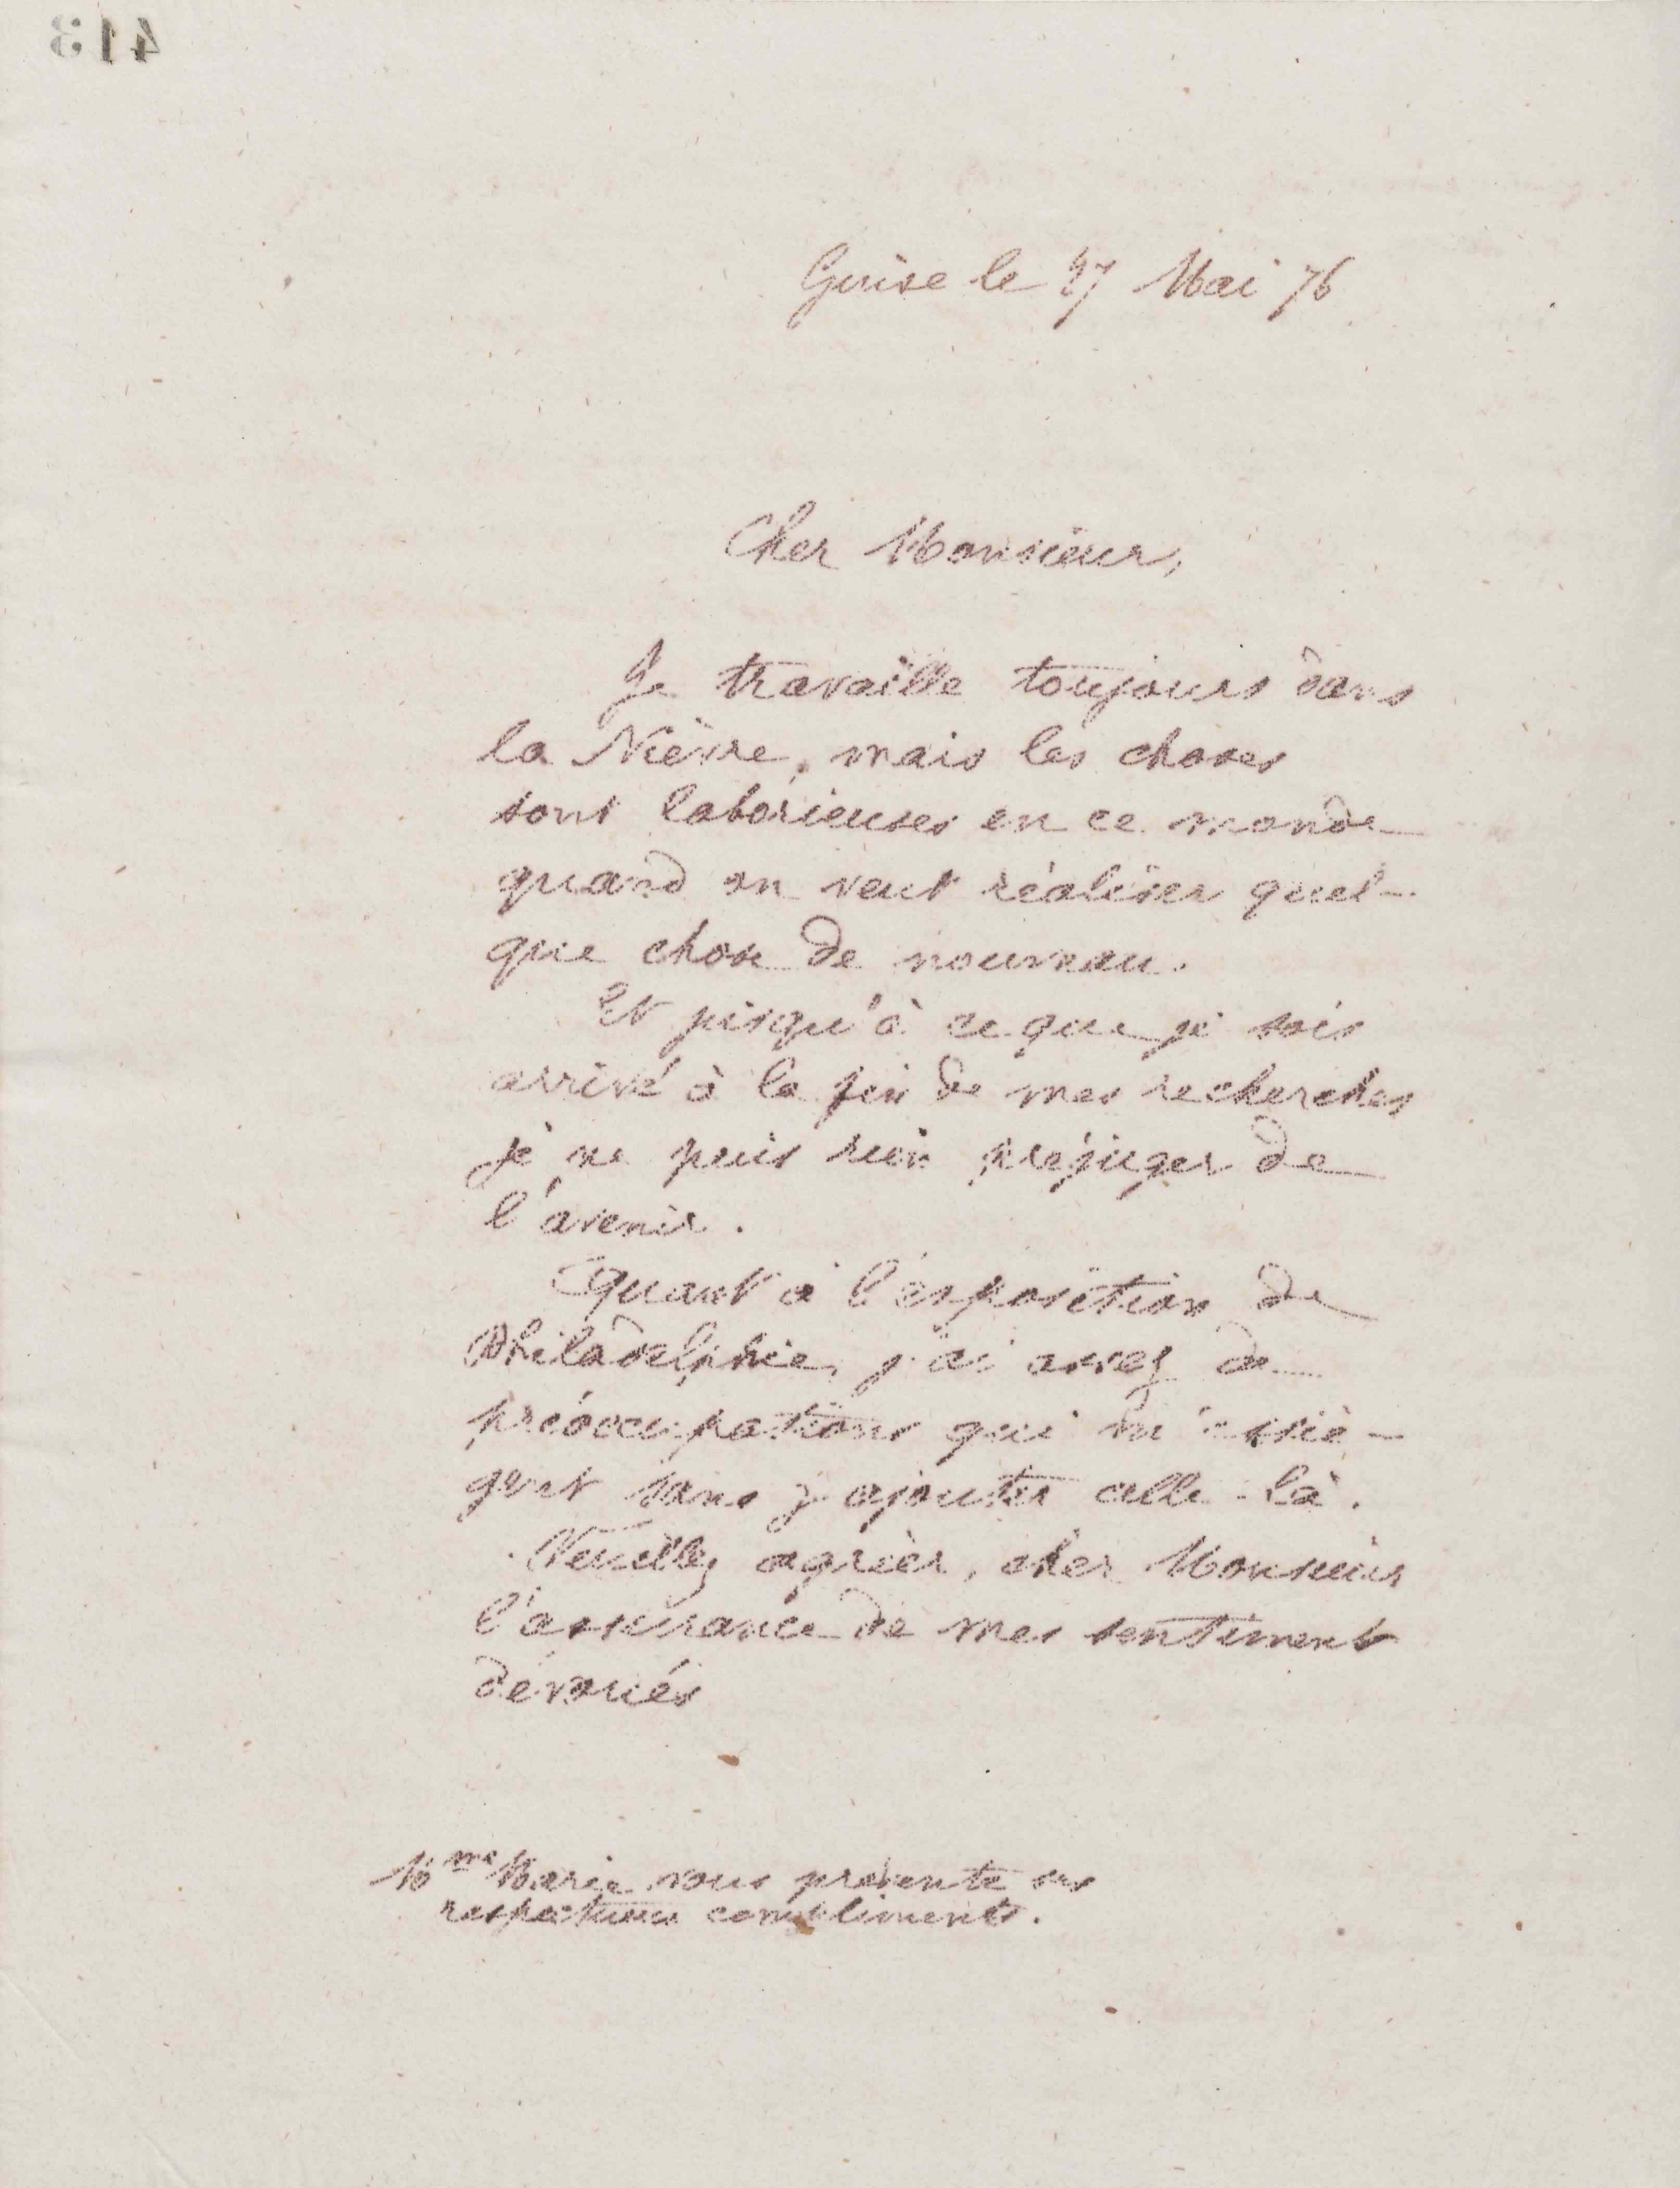 413
Guise le 27 Mai 76
Cher Monsieur,
Je travaille toujours dans
la Nièvre, mais les choses
sont laborieuses en ce monde
quand on veut réaliser quel-
que chose de nouveau.
Et jusqu'à ce que je sois
arrivé à la fin de mes recherches
je ne puis rien préjuger de
l'avenir.
Quant à l'exposition de
Philadelphie, j'ai assez de
préoccupations qui m'assiè-
gent sans y ajouter celle-là.
Veuillez agréer, cher Monsieur
l'assurance de mes sentiments
dévoués
Mme Marie vous présente ses
respectueux compliments.